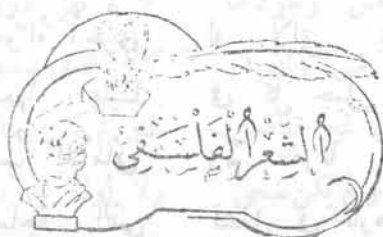 الشِّعْرُ الفَلْسَفِىّ